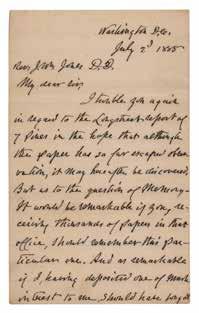 Washington D,C.
July 2d 1885
Rev J Wm Jones D.D.
My dear Sir,
I trouble you again
in regard to the Longstreet report of
7 Pines in the hope that although
the paper has so far escaped obser-
vation, it may hereafter be discovered.
But as to the question of Memory.
It would be remarkable if you, re-
ceiving thousands of papers in that
office, should remember this par-
ticular one. And as remarkable
if I, having deposited one of much
interest to me, should have forgot